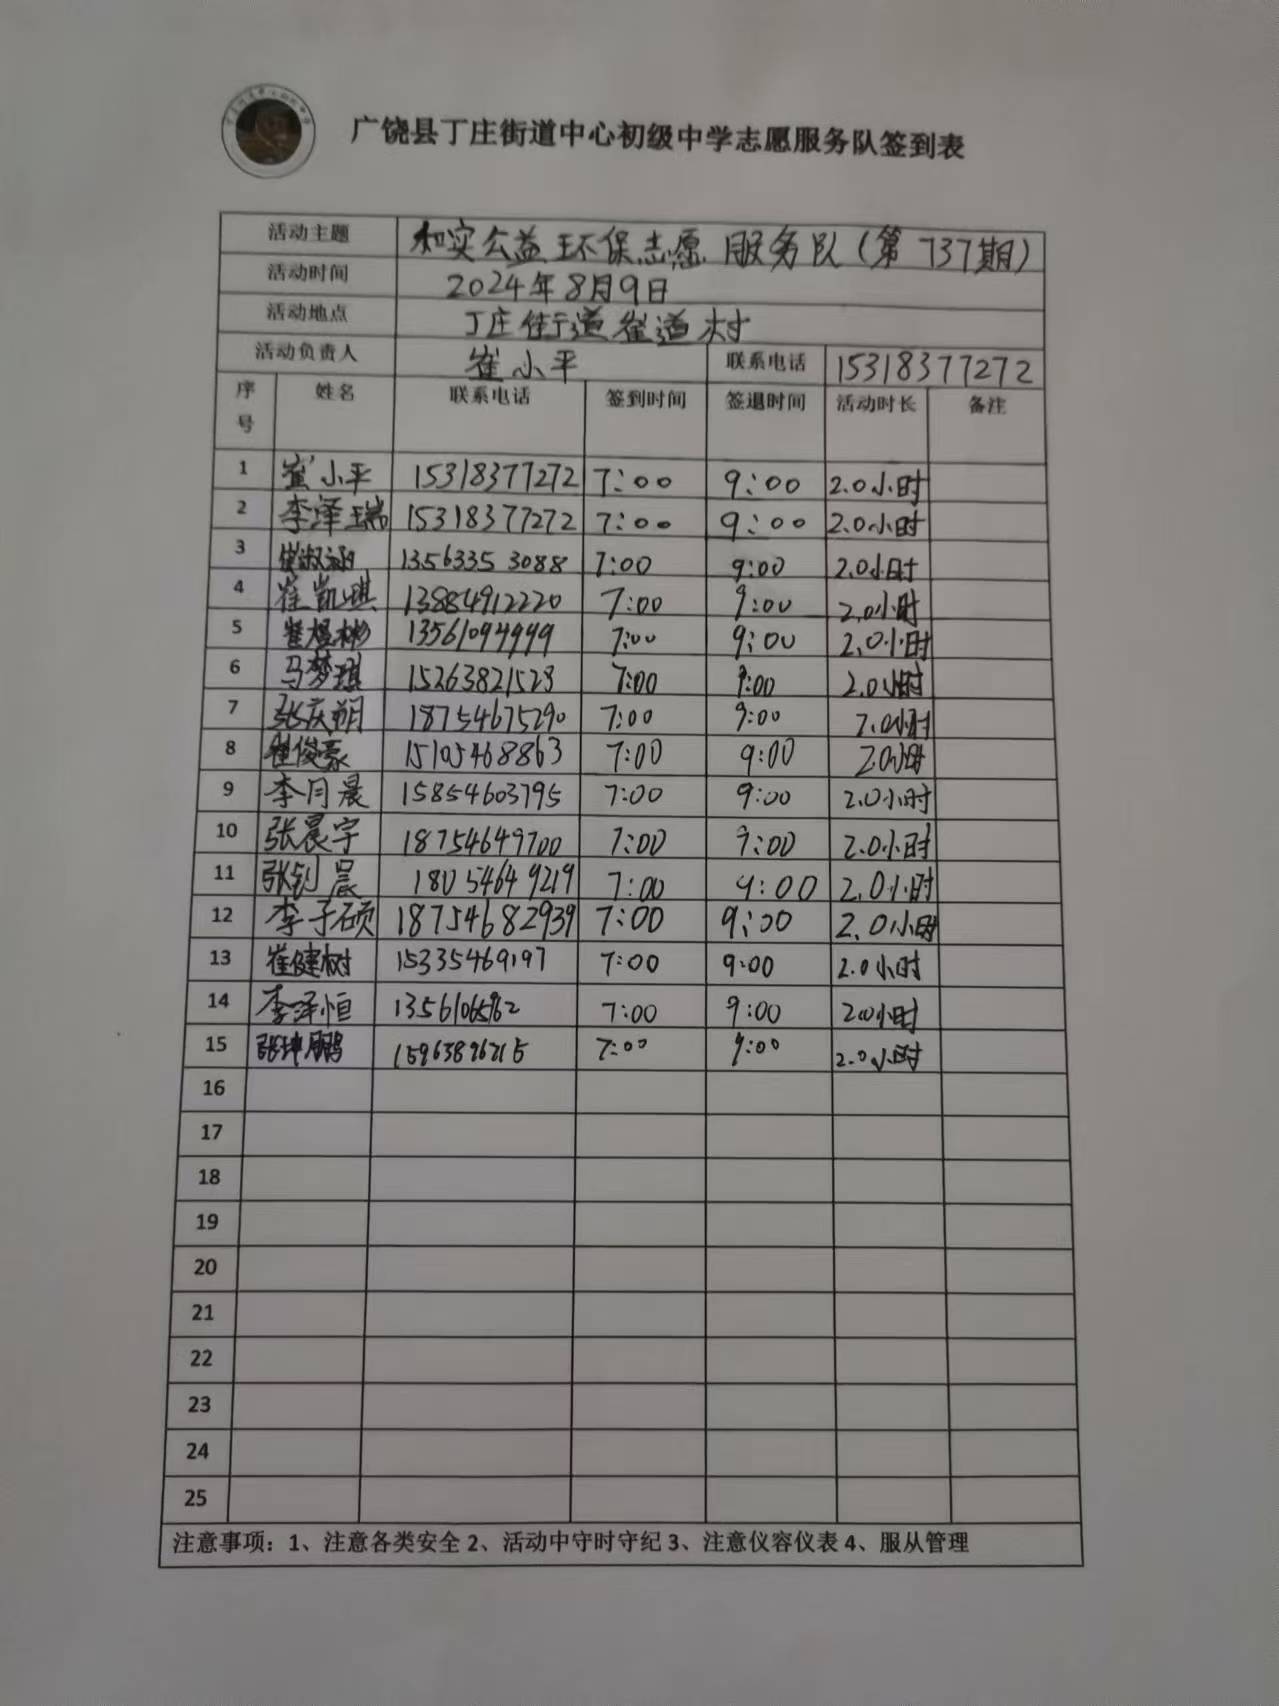 广饶县丁庄街道中心初级中学志愿服务队签到表
活动主题 和实公益环保志愿服务队(第737期)
活动时间 2024年8月9日
活动地点 丁庄街道崔道村
活动负责人 崔小平 联系电话 15318377272
序号 姓名 联系电话 签到时间 签退时间 活动时长 备注
1 崔小平 15318377272 7:00 9:00 2.0小时
2 李泽瑞 15318377272 7:00 9:00 2.0小时
3 崔淑涵 13563353088 7:00 9:00 2.0小时
4 崔凯琪 13884912220 7:00 9:00 2.0小时
5 崔煜彬 13561094999 7:00 9:00 2.0小时
6 马梦琪 15263821523 7:00 9:00 2.0小时
7 张庆朔 18754675290 7:00 9:00 2.0小时
8 崔俊豪 15105468863 7:00 9:00 2.0小时
9 李月晨 15854603795 7:00 9:00 2.0小时
10 张晨宇 18754649700 7:00 9:00 2.0小时
11 张钊晨 18054649219 7:00 9:00 2.0小时
12 李子硕 18754682939 7:00 9:00 2.0小时
13 崔健树 15335469197 7:00 9:00 2.0小时
14 李泽恒 7:00 9:00 2.0小时
15 张坤鹏 7:00 9:00 2.0小时
16
17
18
19
20
21
22
23
24
25
注意事项:1、注意各类安全 2、活动中守时守纪 3、注意仪容仪表 4、服从管理